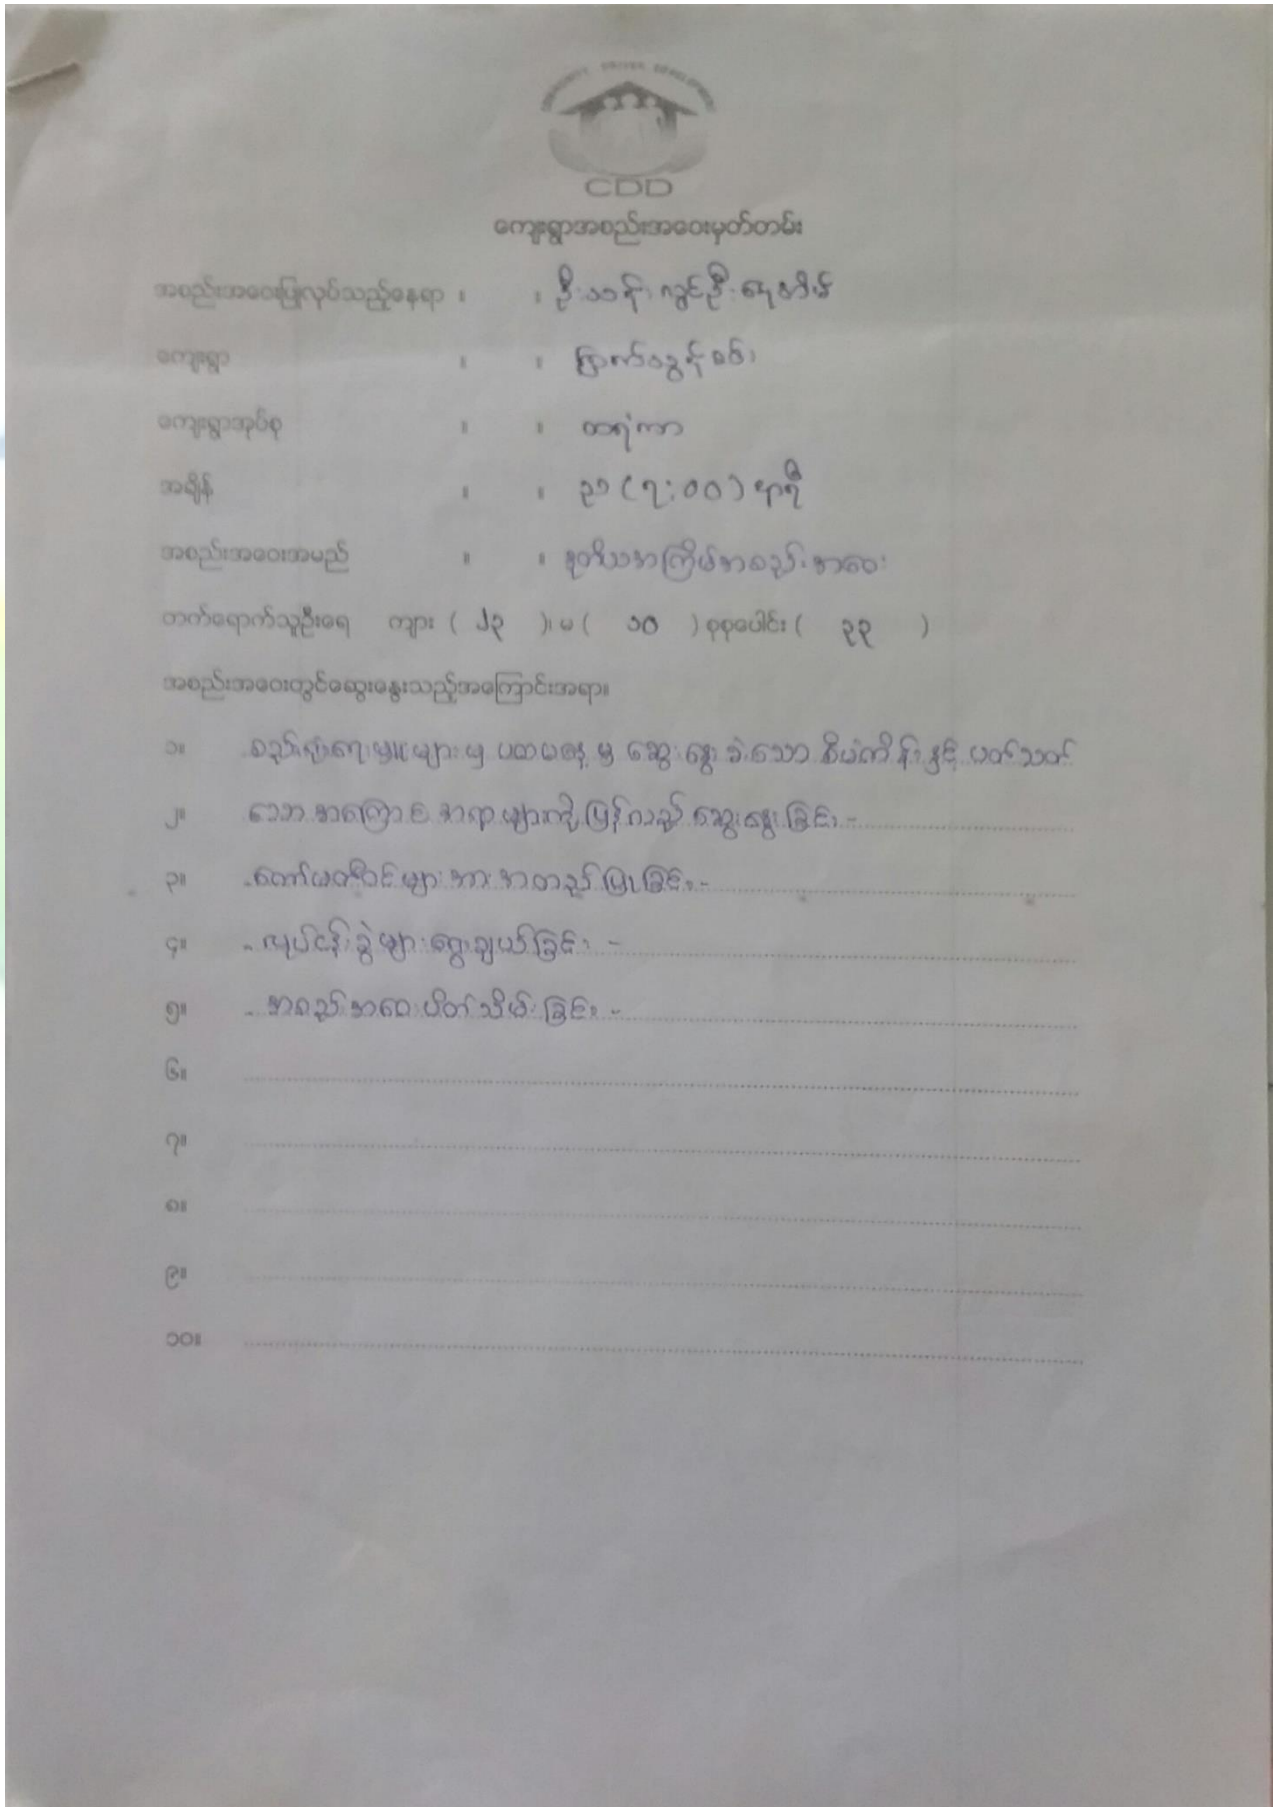 COMMUNITY DRIVEN DEVELOPMENT
CDD
ကျေးရွာအစည်းအဝေးမှတ်တမ်း
အစည်းအဝေးပြုလုပ်သည့်နေရာ ။ ။ ဦးသန်းလွင်ဦးနေအိမ်
ကျေးရွာ ။ ။ မြောက်
ကျေးရွာအုပ်စု ။ ။ ထရံကာ
အချိန် ။ ။ ည (၇:၀၀) နာရီ
အစည်းအဝေးအမည် ။ ။ ဒုတိယအကြိမ်အစည်းအဝေး
တက်ရောက်သူဦးရေ ကျား ( ၂၃ )၊ မ ( ၁၀ ) စုစုပေါင်း ( ၃၃ )
အစည်းအဝေးတွင်ဆွေးနွေးသည့်အကြောင်းအရာ။
၁။ စည်းရုံးရေးမှူးများမှ ပထမနေ့မှ ဆွေးနွေးခဲ့သော စီမံကိန်းနှင့် ပတ်သတ်
၂။ သော အကြောင်းအရာများကို ပြန်လည် ဆွေးနွေးခြင်း -
၃။ ကော်မတီဝင်များအား အတည်ပြုခြင်း -
၄။ လုပ်ငန်းခွဲများရွေးချယ်ခြင်း -
၅။ အစည်းအဝေးပိတ်သိမ်းခြင်း -
၆။
၇။
၈။
၉။
၁၀။